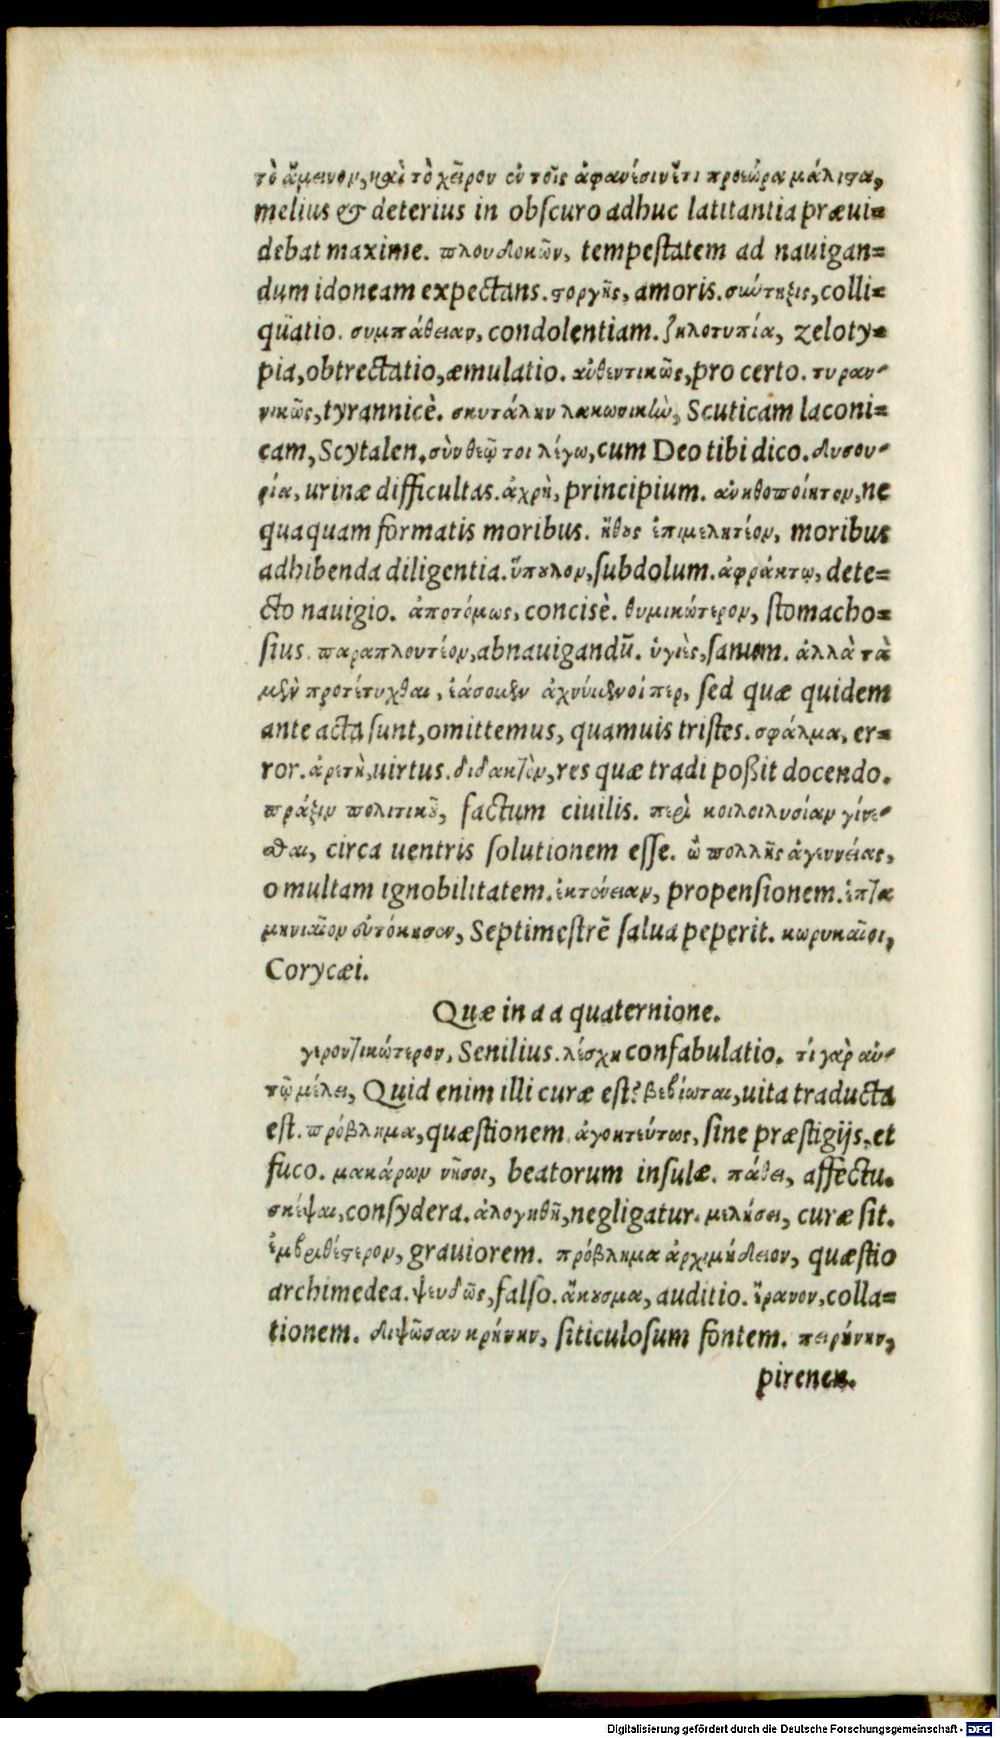 τὸ ἄμεινον, καὶ τὸ χεῖρον ἐν τοῖς ἀφανέσιν ἔτι προεώρα μάλιστα,
melius & deterius in obſcuro adhuc latitantia præui=
debat maxime. πλουδοκῶν, tempeſtatem ad nauigan=
dum idoneam expectans. στοργῆς, amoris. σύντηξις, colli=
quatio. συμπάθειαν, condolentiam. ζηλοτυπία, zeloty=
pia, obtrectatio, æmulatio. αὐθεντικῶς, pro certo. τυραν-
νικῶς, tyrannicè. σκυτάλην λακωνικὼ, Scuticam laconi=
cam, Scytalen. σὺν θεῷ τοι λέγω, cum Deo tibi dico. δυσου-
ρία, urinæ difficultas. ἀχρὴ, principium. ἀνηθοποίητον, ne
quaquam formatis moribus. ἤθους ἐπιμελητέον, moribus
adhibenda diligentia. ὕπουλον, ſubdolum. ἀφράκτῳ, dete=
cto nauigio. ἀποτόμως, concisè. θυμικώτερον, ſtomacho=
ſius. παραπλουτέον, abnauigandū. ὑγιὲς, ſanum. ἀλλὰ τὰ
μὲν προτέτυχθαι, ἐάσομεν ἀχνύμενοί περ, ſed quæ quidem
ante acta ſunt, omittemus, quamuis triſtes. σφάλμα, er=
ror. ἀρετὴ, uirtus. διδακτὸν, res quæ tradi poßit docendo.
πράξιν πολιτικοῦ, factum ciuilis. περὶ κοιλοιλυσίαν γίνε-
σθαι, circa uentris ſolutionem eſſe. ὢ πολλῆς ἀγεννείας,
o multam ignobilitatem. ἐκτένειαν, propenſionem. ἑπτα
μηνιαῖον ἐυτόκησεν, Septimeſtrē ſalua peperit. κωρυκαῖοι,
Corycæi.
Quæ in a a quaternione.
γεροντικώτερον, Senilius. λέσχη confabulatio. τί γὰρ αὐ-
τῷ μέλει, Quid enim illi curæ eſt? βεβίωται, uita traducta
eſt. πρόβλημα, quæſtionem. ἀγοητεύτως, ſine præſtigijs, et
fuco. μακάρων νῆσοι, beatorum inſulæ. πάθει, affectu.
σκέψαι, conſydera. ἀλογηθῆ, negligatur. μελήσει, curæ ſit.
ἐμβριθέστερον, grauiorem. πρόβλημα ἀρχιμήδειον, quæſtio
archimedea. ψευδῶς, falſo. ἄκουσμα, auditio. ἔρανον, colla=
tionem. διψῶσαν κρήνην, ſiticuloſum fontem. πειρήνην,
pirenen.
Digitalisierung gefördert durch die Deutsche Forschungsgemeinschaft - DFG